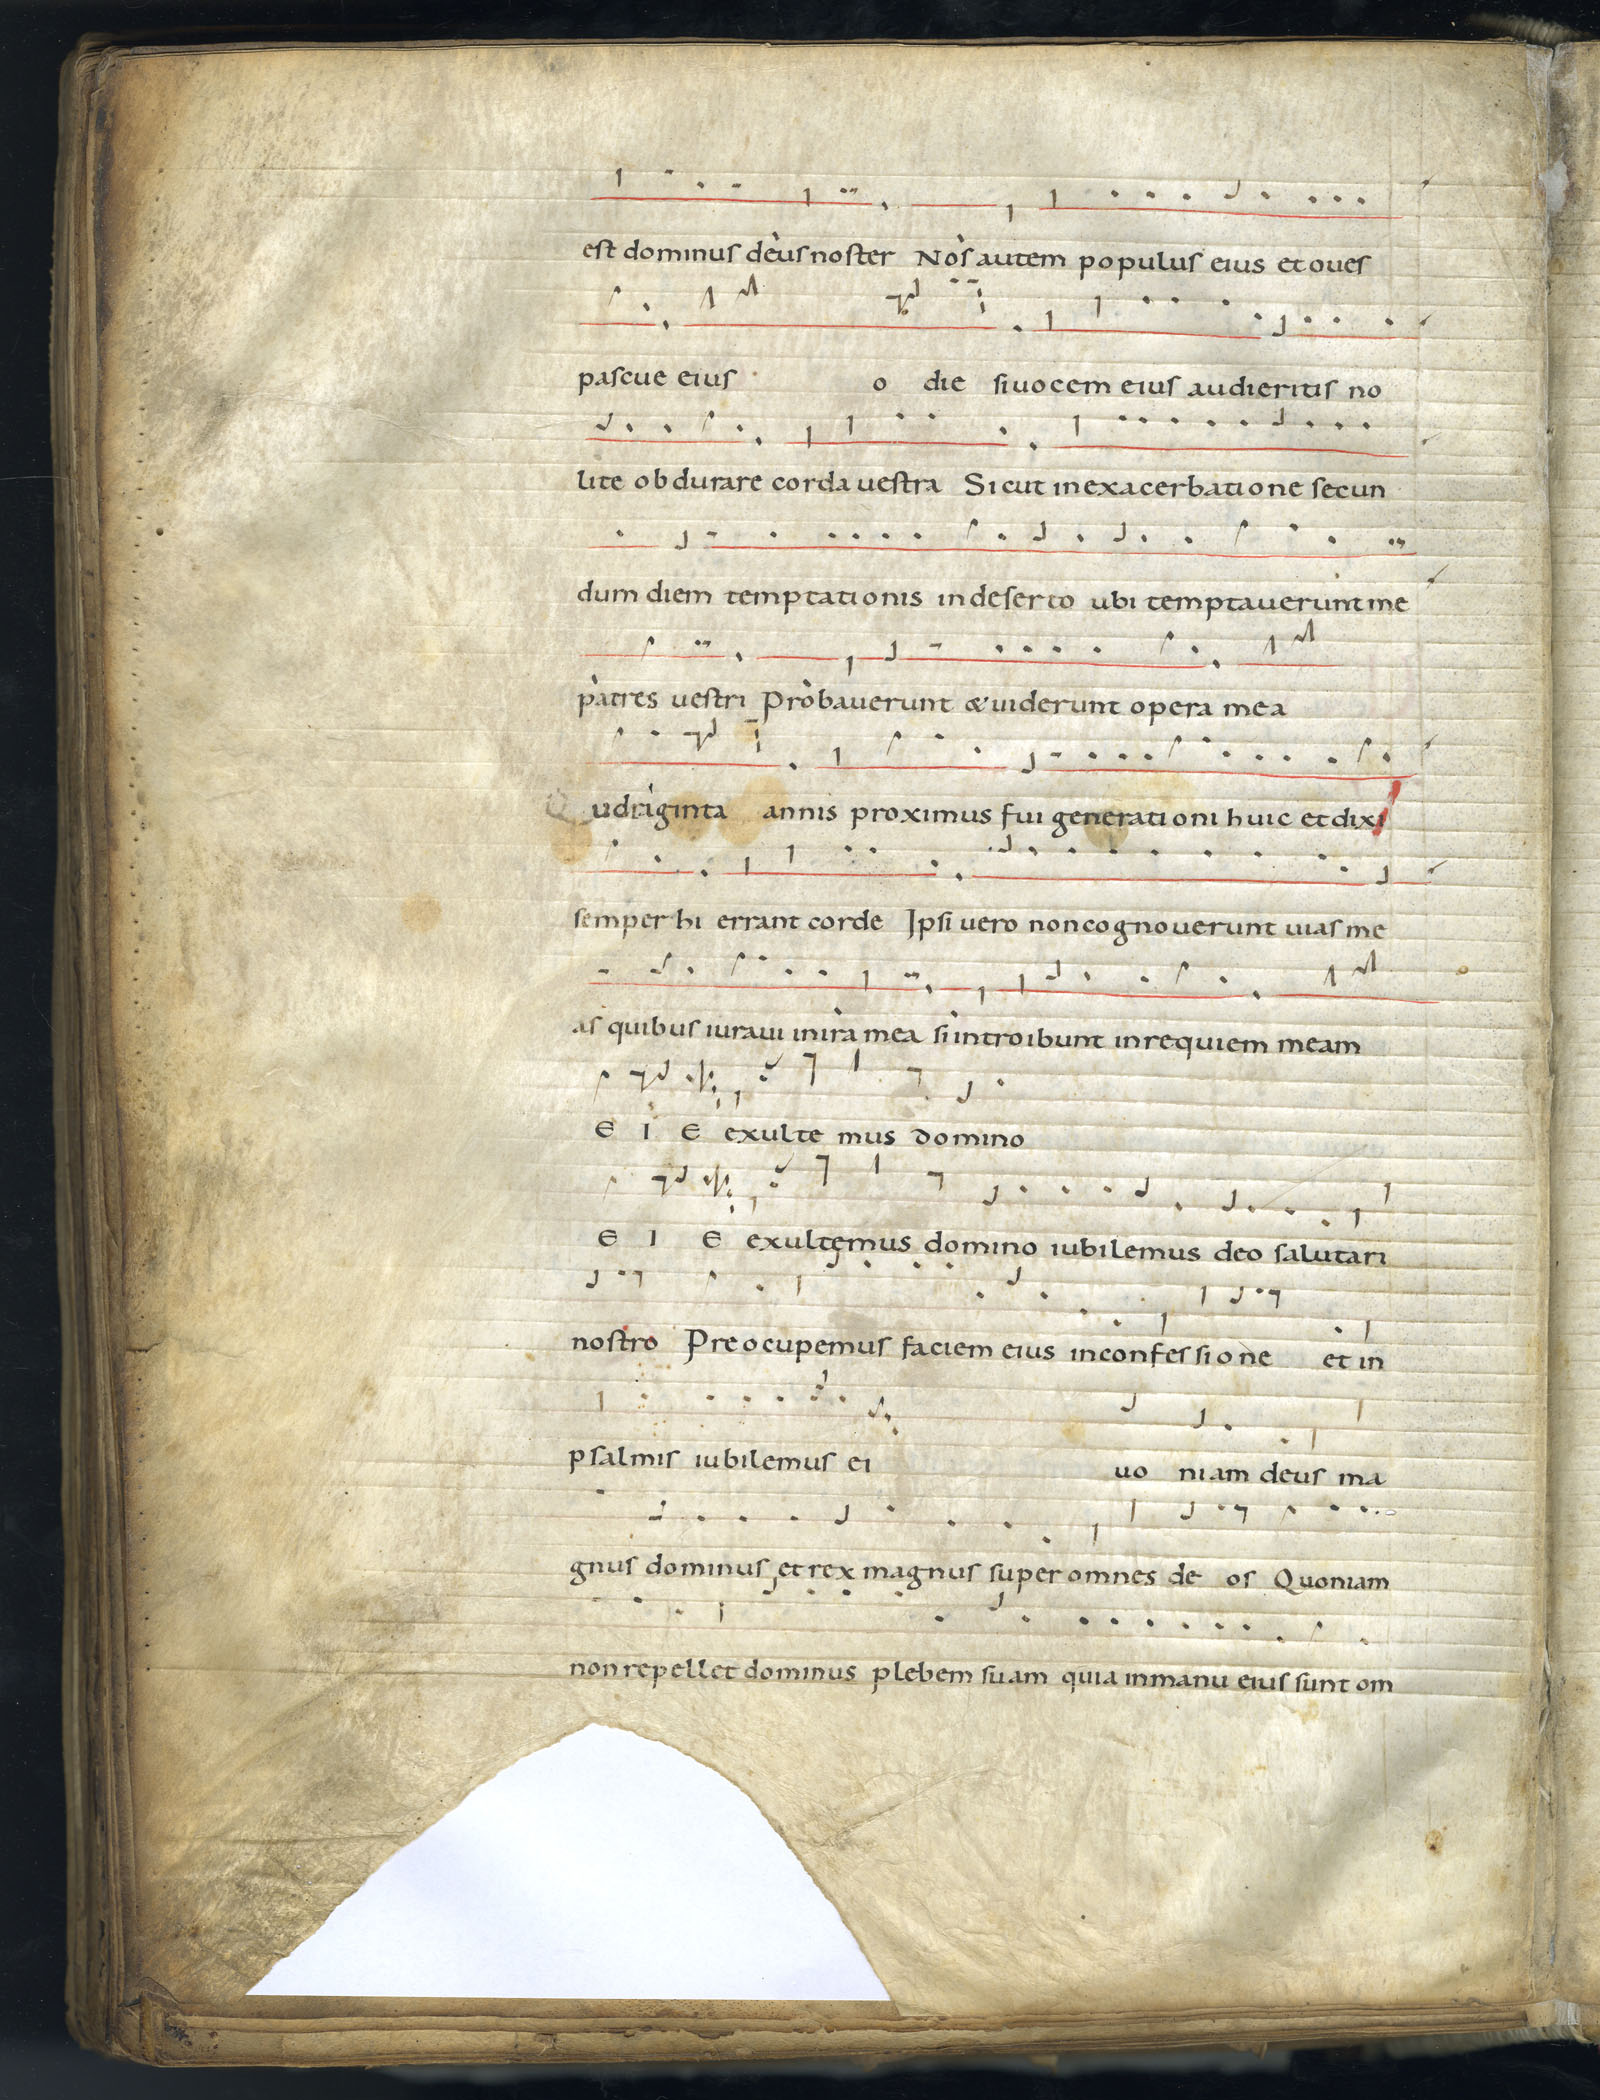 est dominus deus noster Nos autem populus eius et oues
pascue eius o die si uocem eius audieritis no
lite obdurare corda uestra Sicut in exacerbatione secun
dum diem temptationis in deserto ubi temptauerunt me
patres uestri Probauerunt & uiderunt opera mea
Qudraginta annis proximus fui generationi huic et dixi
semper hi errant corde Ipsi uero non cognouerunt uias me
as quibus iuraui in ira mea si introibunt in requiem meam
E I E exulte mus domino
E I E exultemus domino iubilemus deo salutari
nostro Preocupemus faciem eius in confessione et in
psalmis iubilemus ei uo niam deus ma
gnus dominus et rex magnus super omnes de os Quoniam
non repellet dominus plebem suam quia in manu eius sunt om